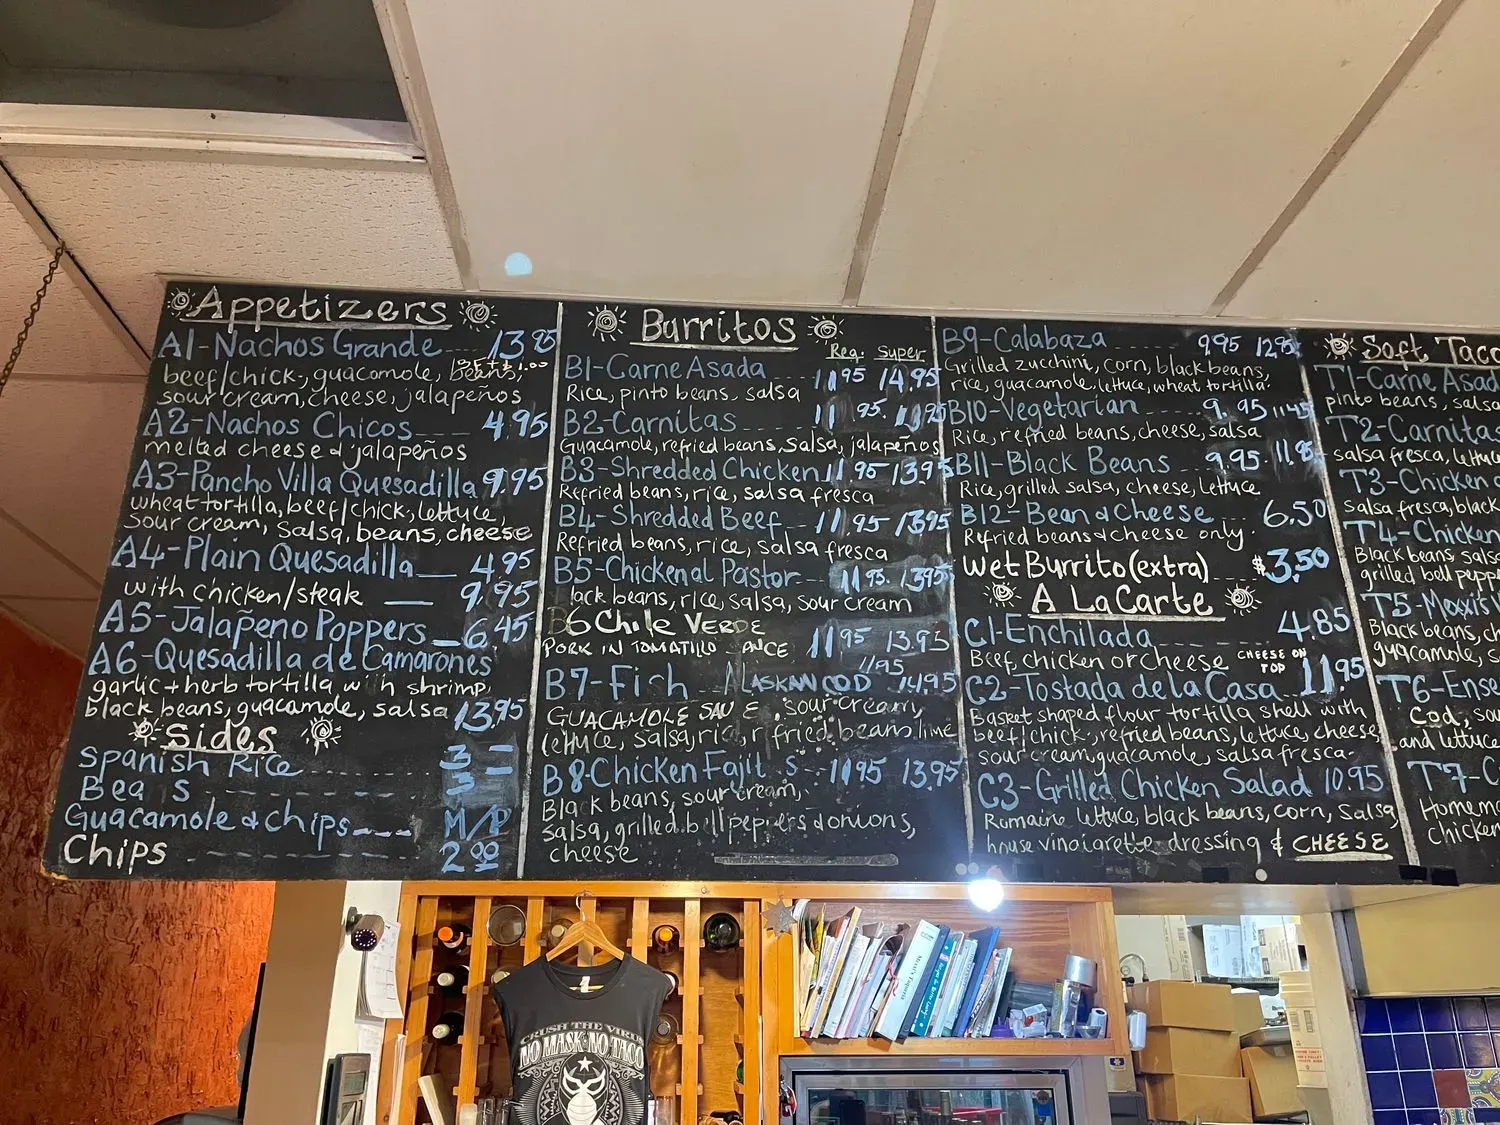 Appetizers
A1-Nachos Grande 13.95
beef/chick., guacamole, beans,
sour cream, cheese, jalapeños
A2-Nachos Chicos 4.95
melted cheese & jalapeños
A3-Pancho Villa Quesadilla 9.95
wheat tortilla, beef/chick., lettuce,
sour cream, salsa, beans, cheese
A4-Plain Quesadilla 4.95
with chicken/steak 9.95
A5-Jalapeño Poppers 6.45
A6-Quesadilla de Camarones
garlic + herb tortilla wi h shrimp,
black beans, guacamole, salsa 13.95
Sides
Spanish Rice 3 -
Bea s 3 -
Guacamole & chips M/P
Chips 2.00
Burritos
Reg. Super
B1-Carne Asada 11.95 14.95
Rice, pinto beans, salsa
B2-Carnitas 11.95
Guacamole, refried beans, salsa, jalapeños
B3-Shredded Chicken 11.95 13.95
Refried beans, rice, salsa fresca
B4-Shredded Beef 11.95 13.95
Refried beans, rice, salsa fresca
B5-Chicken al Pastor 11.95 13.95
lack beans, rice, salsa, sour cream
B6 Chile VERDE
PORK IN TOMATILLO AUCE 11.95 13.95
11.95
B7-Fish ALASKAN COD 14.95
GUACAMOLE SAU E, sour cream,
lettuce, salsa, rice, r fried beans, lime
B8-Chicken Fajit s 11.95 13.95
Black beans, sour cream,
salsa, grilled bell peppers & onions,
cheese
B9-Calabaza 9.95 12.95
Grilled zucchini, corn, black beans,
rice, guacamole, lettuce, wheat tortilla.
B10-Vegetarian 9.95 11.45
Rice, refried beans, cheese, salsa
B11-Black Beans 9.95
Rice, grilled salsa, cheese, lettuce
B12-Bean & Cheese 6.50
Refried beans & cheese only.
Wet Burrito (extra) $3.50
A La Carte
C1-Enchilada 4.85
Beef, chicken or cheese CHEESE ON
TOP
C2-Tostada de la Casa 11.95
Basket shaped flour tortilla shell with
beef/chick., refried beans, lettuce, cheese,
sour cream, guacamole, salsa fresca.
C3-Grilled Chicken Salad 10.95
Romaine lettuce, black beans, corn, salsa,
house vinaigrette dressing & CHEESE
Soft Taco
T1-Carne Asad
pinto beans, salsa
T2-Carnitas
salsa fresca, lettu
T3-Chicken
salsa fresca, black
T4-Chicken
Black beans, sals
grilled bell pepp
T5-
Black beans, ch
guacamole, s
T6-Ense
Cod, sou
and lettuce
T7-C
Homem
chicken
CRUSH THE VIRUS
NO MASK·NO TACO